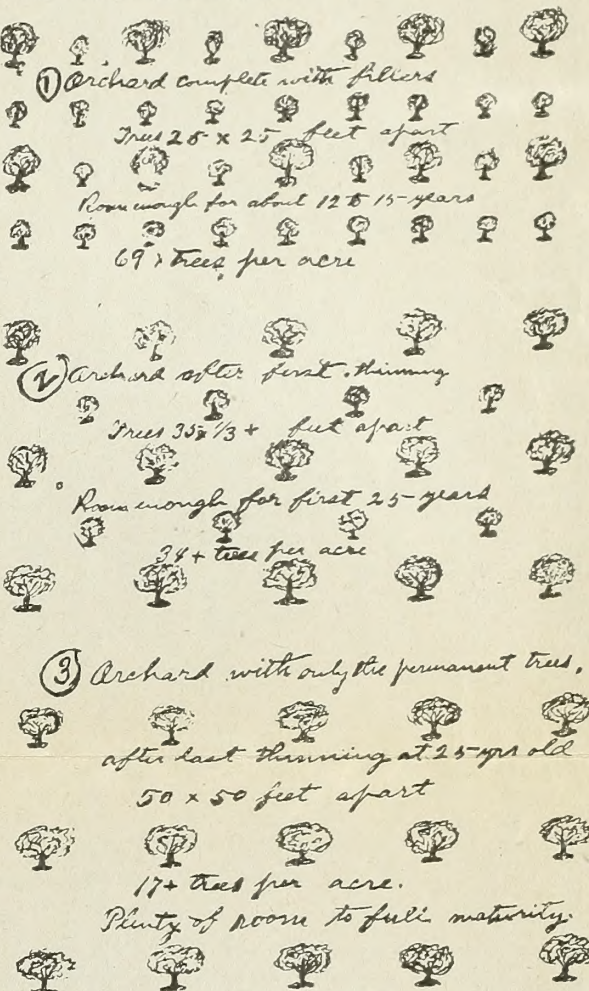 ① Orchard complete with fillers
Trees 25 x 25 feet apart
Room enough for about 12 to 15 years
69 + trees per acre
② Orchard after first thinning
Trees 35 1/3 + feet apart
Room enough for first 25 years
34 + trees per acre
③ Orchard with only the permanent trees.
after last thinning at 25 yrs old
50 x 50 feet apart
17+ trees per acre.
Plenty of room to full maturity.